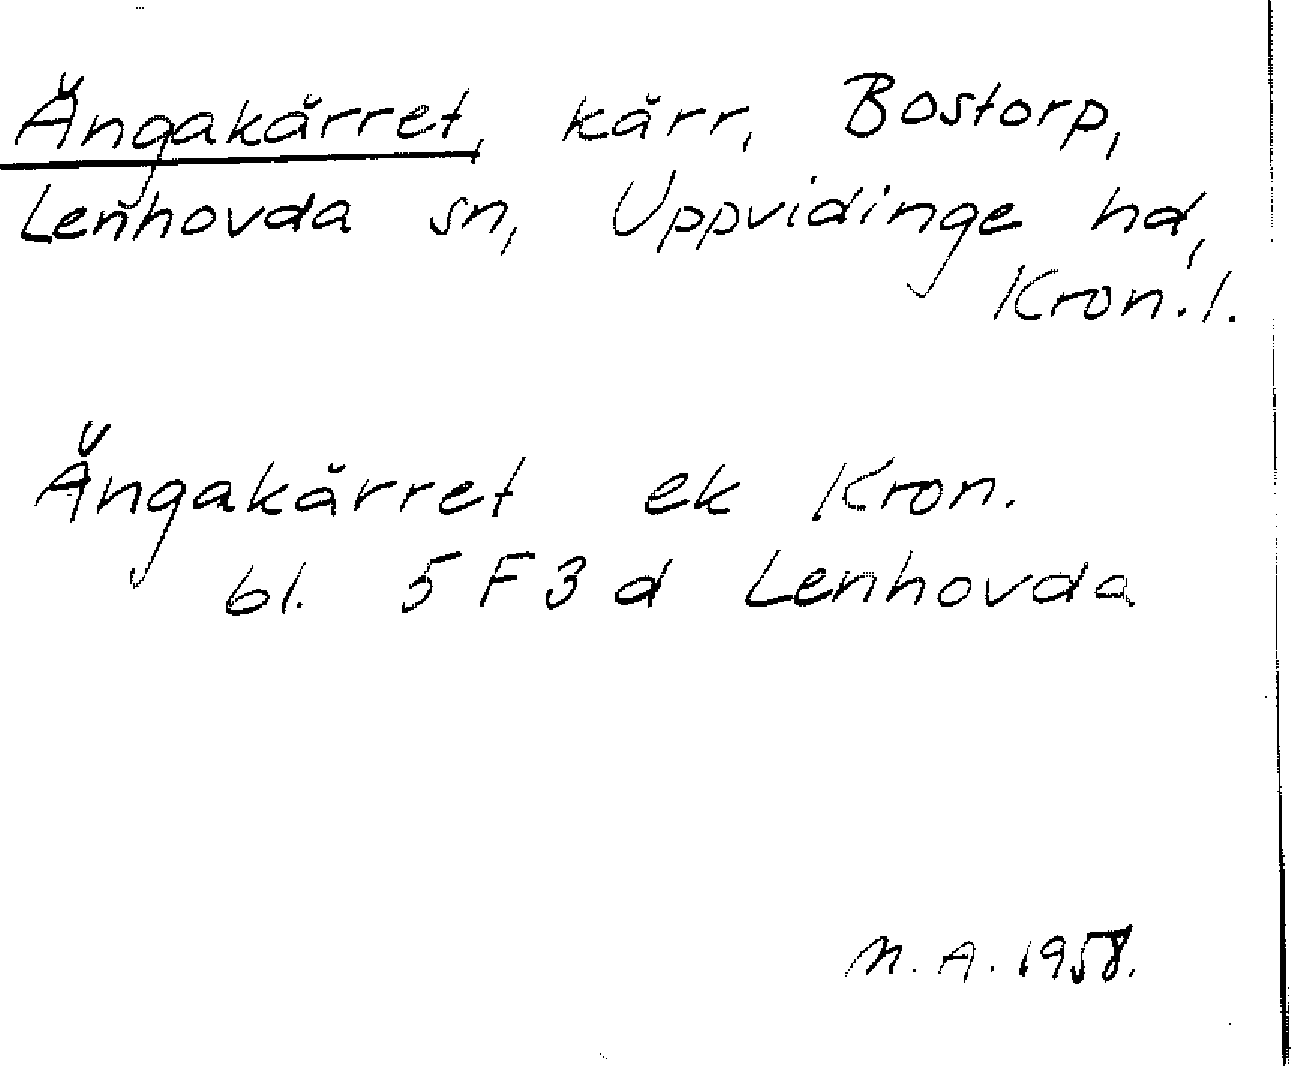 Ängakärret, kärr, Bostorp,
Lenhovda sn, Uppvidinge hd,
Kron. l.
Ängakärret ek Kron.
bl. 5 F 3 d Lenhovda
M. A. 1958.